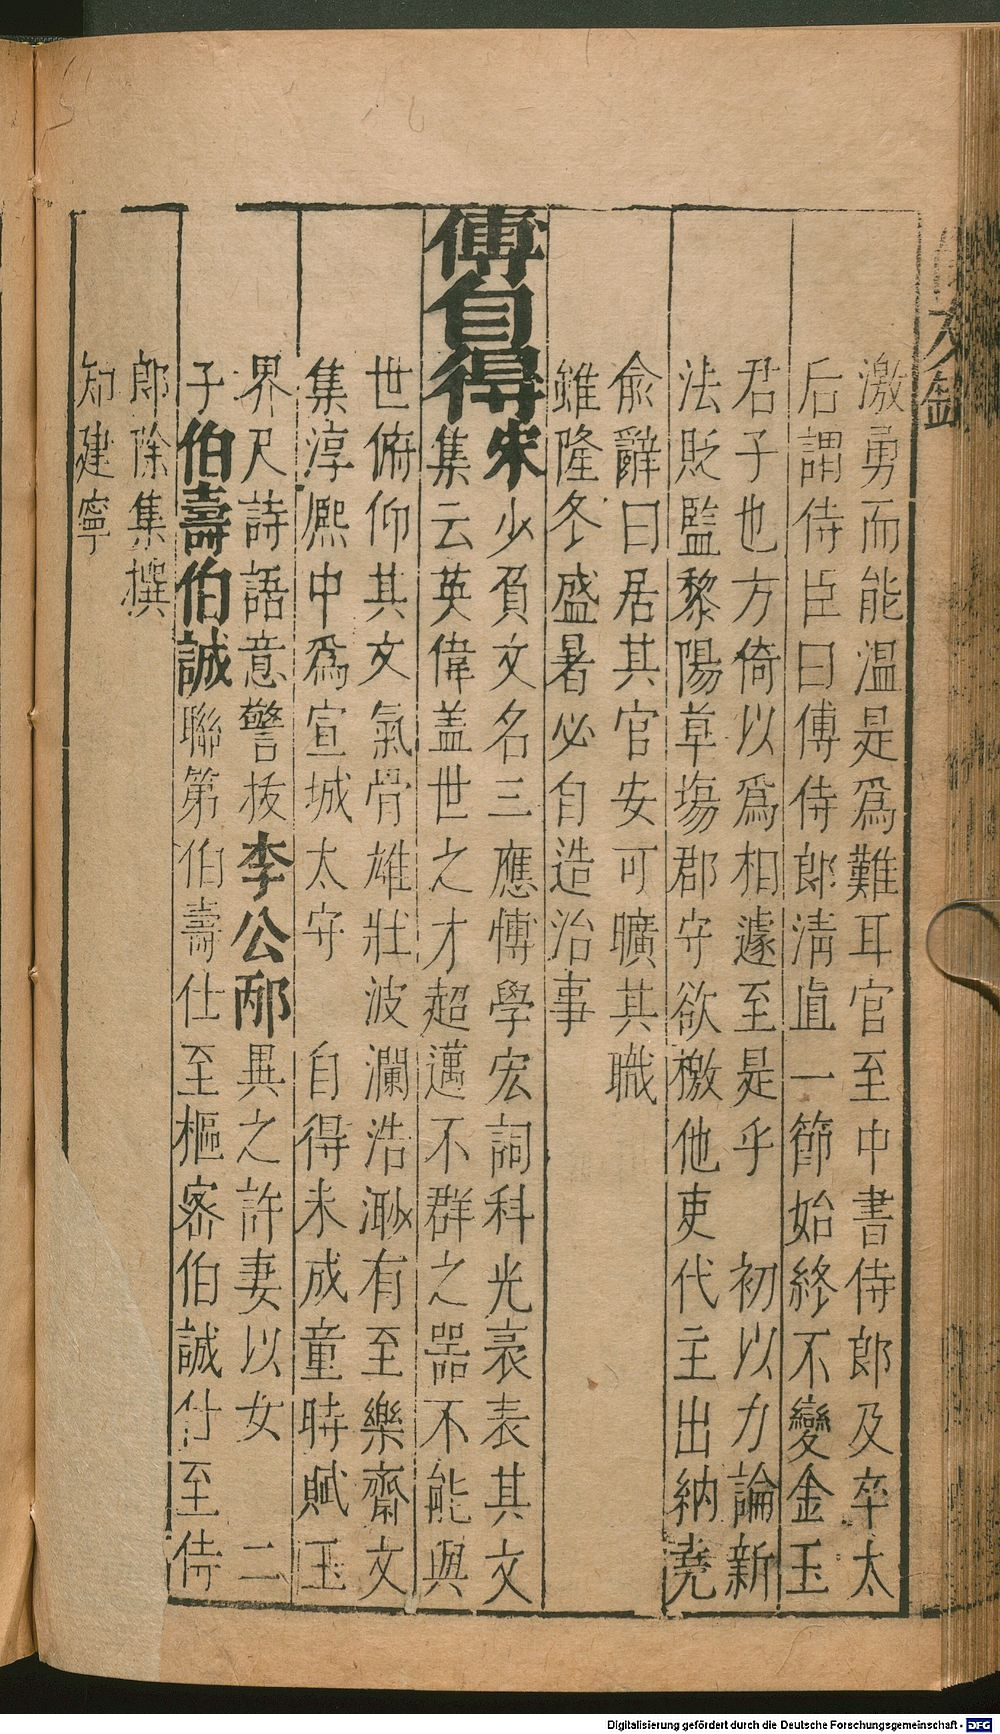 激勇而能温是爲難耳官至中書侍郎及卒太
后謂侍臣曰傅侍郎清直一節始終不變金玉
君子也方倚以爲相遽至是乎　初以力論新
法貶監黎陽草塲郡守欲檄他吏代主出納堯
俞辭曰居其官安可曠其職
雖隆冬盛暑必自造治事
傅自得宋少負文名三應博學宏詞科光裘表其文
集云英偉盖世之才超邁不群之器不能與
世俯仰其文氣骨雄壯波瀾浩渺有至樂齋文
集淳熈中爲宣城太守　自得未成童時賦玉
界尺詩語意警拔李公邴異之許妻以女　二
子伯壽伯誠聯第伯壽仕至樞密伯誠仕至侍
郎除集撰
知建寧
Digitalisierung gefördert durch die Deutsche Forschungsgemeinschaft - DFG